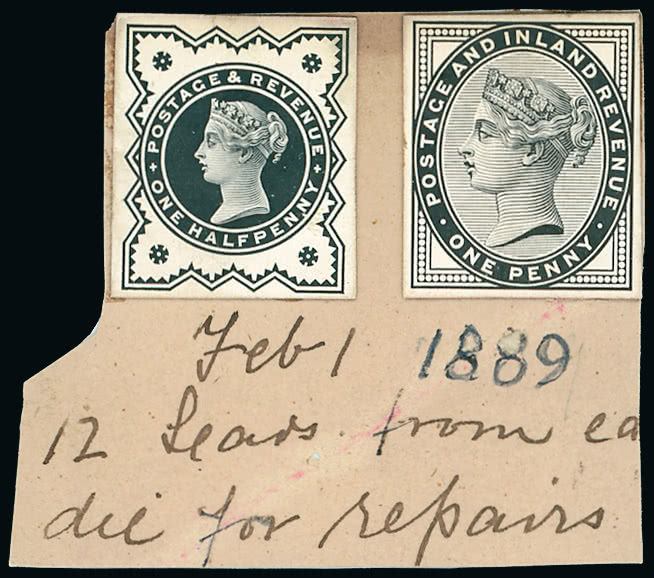 POSTAGE & REVENUE
+ ONE HALFPENNY +
POSTAGE AND INLAND REVENUE
· ONE PENNY ·
Feb 1 1889
12 Leads from ea
die for repairs